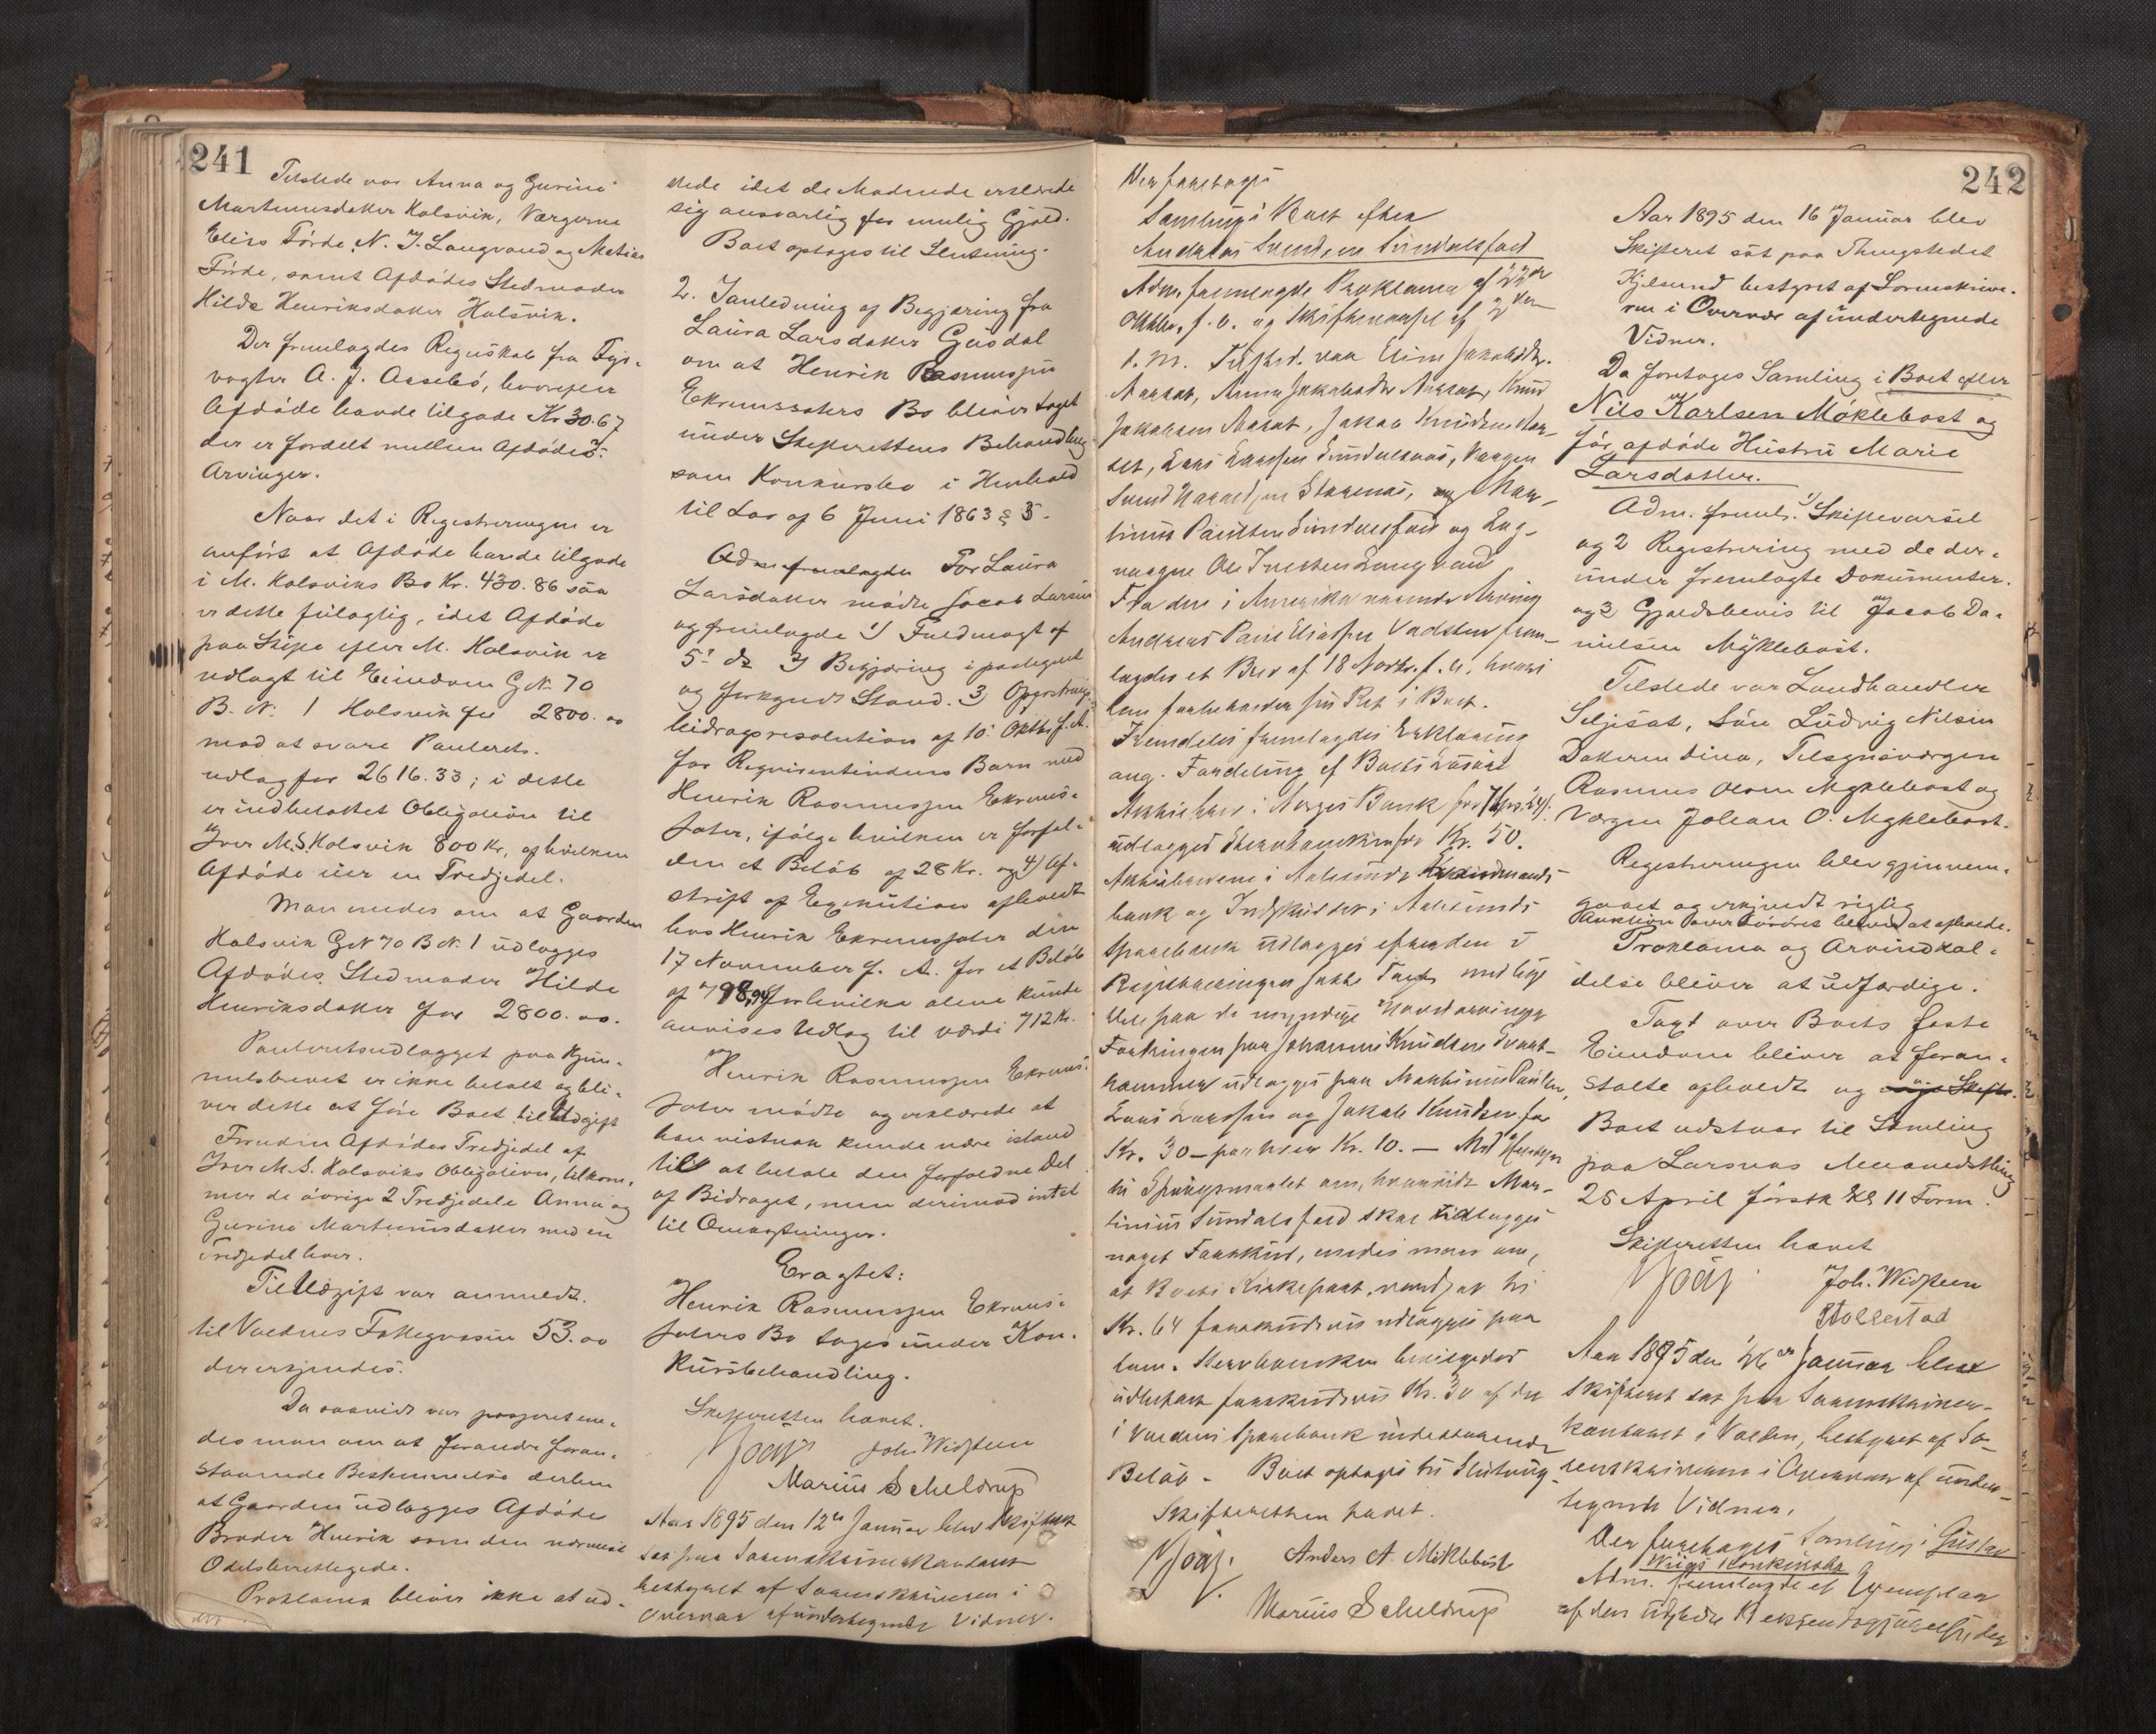 241
Tilstede var Anna og Gurine
Martinusdatter Holsvik, Værgerne
Elias Förde, N. J. Langvand og Matias
Förde, samt Afdödes Stedmoder
Hilda Henriksdatter Holsvik.
Der fremlagdes Regnskab fra
vogter A. J. Aasebö, hvorefter
Afdöde havde tilgode Kr 30.67
der er fordelt mellem Afdödes
Arvinger.
Naar det i Registreringen er
anfört at Afdöde havde tilgode
i M. Holsviks Bo Kr. 430.86 saa
er dette feilagtig, idet Afdöde
paa Skifte efter M. Holsvik er
udlagt til Eiendom G N. 70
B. N. 1 Holsvik for 2800.00
mod at svare Panterets-
udlæg for 2616.33; i dette
er indbefattet Obligation til
Iver M. S. Holsvik 800 Kr, af hvilken
Afdöde eier en Tredjedel.
Man enedes om at Gaarden
Holsvik G N 70 B N. 1 udlægges
Afdödes Stedmoder Hilde
Henriksdatter for 2800.00.
Panteretsudlægget paa Hjem-
melsbrevet er ikke betalt og bli-
ver dette at före Boet til Udgift
Foruden Afdödes Tredjedel af
Iver M. S. Holsviks Obligation, tilkom-
mer de övrige 2 Tredjedele Anna og
Gurine Martinusdatter med en
Tredjedel hver.
Til Udgift var anmeldt.
til Voldens Fattigvæsen 53.00
der erkjendes.
Da saavidt var passeret ene-
des man om at forandre foran-
staaende Bestemmelse derhen
at Gaarden udlægges Afdödes
Broder Henrik som den nærmest
Odelsberettigede.
Proklama bliver ikke at ud-
stede idet de Mödende erklærede
sig ansvarlig for mulig Gjæld.
Boet optages til Slutning.
2. I anledning af Begjæring fra
Laura Larsdatter Gusdal
om at Henrik Rasmussen
Ekremssæters Bo bliver taget
under Skifterettens Behandling
som Konkursbo i Henhold
til Lov af 6 Juni 1863 § 5.
Adm fremlagde For Laura
Larsdatter mödte Jacob Larsen
og fremlagde 1) Fuldmagt af
5. ds 2) Begjæring i paategnet
og forkyndt Stand. 3) Opfostrings-
bidragsresolution af 10. Oktbr f. A.
for Reqvirentindens Barn med
Henrik Rasmussen Ekrems-
sæter, ifölge hvilken er forfal-
den et Belöb af 28 Kr. og 4) Af-
skrift af Exekution afholdt
hos Henrik Ekremssæter den
17 November f. A. for et Belöb
af 798,94 for hvilke alene kunde
anvises Udlæg til værdi 712 Kr.
Henrik Rasmussen Ekrems-
sæter mödte og erklærede at
han vistnok kunde være istand
til at betale den forfaldne Del
af Bidraget, men derimod intet
til Omkostninger.
Eragtet:
Henrik Rasmussen Ekrems-
sæters Bo tages under Kon-
kursbehandling.
Skifteretten hævet.
Joh. Widsteen
Marius Scheldrup
Aar 1895 den 12te Januar blev Skifteret
sat paa Sorenskriverkontoret
bestyret af Sorenskriveren i
Overvær af undertegnede Vidner.
242
Der foretoges
Samling i Boet efter
Andreas Svendsen Sundalsfoed
Adm. fremlagde Proklama af 22de
Oktbr. f. A. og Skiftevarsel af 2den
d. M. Tilsted. var Eline Jakobsdtr.
Aarset, Anna Jakobsdtr Aarset, Knud
Jakobsen Aarset, Jakob Knudsen Aar-
set, Lars Larssen Sundalsnæs, Værgen
og Mar-
tinus Paulsen Sundalsfoed og Lag-
værge Ole Langvand
Fra den i Amerika værende Arving
Andreas Paul Eliassen Vadsten frem-
lagdes et Brev af 18 Novbr. f. A. hvori
han forbeholder sin Ret i Boet.
Fremdeles fremlagdes Erklæring
ang. Fordeling af Boets Lösöre
Aktiebrev i Norges Bank for
udlægges Stervbøenken for Kr. 50.
Aktiebrevene i Aalesunds
bank og Indskudet i Aalesunds
Sparebank udlægges efter den i
Registreringen satte Taxt med lige
Dele paa de myndige Hovedarvinger
Fordringen paa Johannes Knudsen
hammer udlægges paa Martinus Paulsen,
Lars Larssen og Jakob Knudsen for
Kr. 30 – paa hver Kr. 10. – Med Hensyn
til Spörgsmaalet om, hvorvidt Mar-
tinus Sundalsfoed skal udlægges
noget Forskud, enedes man om,
at Boets Kirkepart, vurderet til
Kr. 64 forskudsvis udlægges paa
ham. Stervbøenken bevilgedes
udbetalt forskudsvis Kr. 30 af det
i Voldens Sparebank indestaaende
Belöb. Boet optages til Slutning.
Skifteretten hævet.
Anders A. Möklebust
Marius Scheldrup
Aar 1895 den 16 Januar blev
Skifteret sat paa Thingstedet
Kjelsund bestyret af Sorenskrive-
ren i Overvær af undertegnede
Vidner.
Da foretoges Samling i Boet efter
Nils Karlsen Möklebost og
för afdöde Hustru Marie
Larsdatter.
Adm. freml. 1) Skiftevarsel
og 2 Registrering med de der-
under fremlagte Dokumenter.
og 3 Gjældsbevis til Jacob Da-
nielsen Myklebost.
Tilstede var Landhandler
Seljesæt, Sön Ludvig Nilsen
Datteren Dina, Tilsynsværgen
Rasmus Olsen Myklebost og
Værgen Johan O. Myklebost.
Registreringen blev gjennem-
gaaet og erkjendt rigtig
Auktion over Lösöret bliver at afholde.
Proklama og Arveindkal-
delse bliver at udfærdige.
Taxt over Boets faste
Eiendom bliver at foran-
stalte afholdt og
Boet udstaar til Samling
paa Larsnæs Maanedsthing
25 April förstk Kl 11 Form.
Skifteretten hævet
Joh. Widsteen
Aar 1895 den 26de Januar blev
Skifteret sat paa Sorenskriver-
kontoret i Volden, bestyret af So-
renskriveren i Overvær af under-
tegnede Vidner.
Der foretoges Samling i Gustav
Wiigs Konkursbo
Adm. fremlagde et Exemplar
af den udstedte